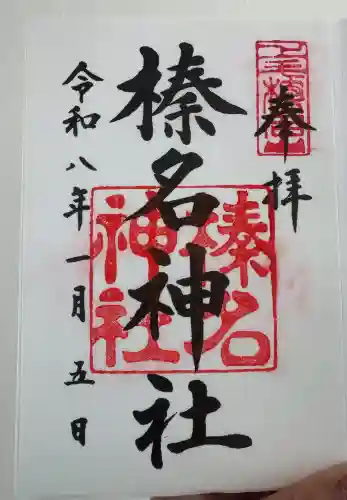 奉拝
榛名神社
榛名神社
令和八年一月五日